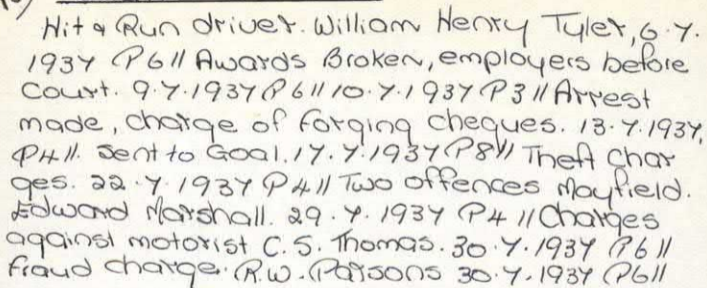 Hit & Run driver. William Henry Tyler, 6.7.
1937 P6 // Awards Broken, employers before
Court. 9.7.1937 P6 // 10.7.1937 P3 // Arrest
made, charge of forging cheques. 13.7.1937,
P4 //. Sent to Goal. 17.7.1937 P8 // Theft Char
ges. 22.7.1937 P4 // Two offences Mayfield.
Edward Marshall. 29.7.1937 P4 // Charges
against motorist C.S. Thomas. 30.7.1937 P6 //
fraud charge. R.W. Parsons 30.7.1937 P6 //